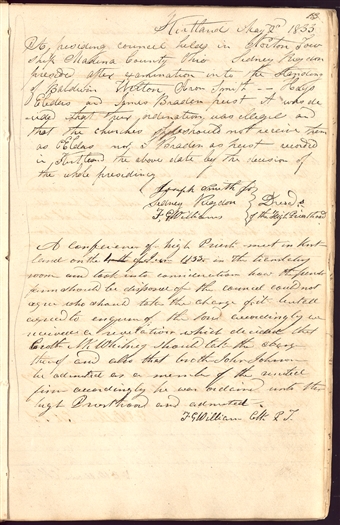 13
Kirtland May 2d 1833
At presiding council held in Norton Town
ship Madina County Ohio Sidney Rigdon
presided after examination into the standing
of Baldwin Welton, Aron Smith Hays
Elders and James Braden priest it was de
cided that their ordination was illegal and
that the churches should not receive them
as Elders nor J Braden as priest recorded
in Kirtland the above date by the decision of
the whole presidincy
Joseph Smith Jr
Sidney Rigdon
F. G Williams
Presd.s
of the High Priesthood
A conference of high Priests met in Kirt
land on the 1833 in the translating
room and took into consideration how the french
farm should be disposed of the council could not
agree who should take the charge of it but all
agreed to enquire of the Lord accordingly we
received a revelation which decided that
broth N K Whitney should take the charge
thereof and also that broth John Johnson
be admitted as a member of the united
firm accordingly he was ordained unto the
high Priesthood and admitted
F G William Clk P. T.